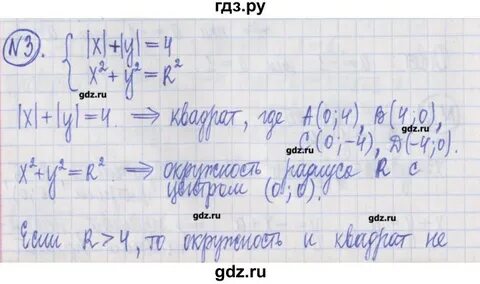 гдз.ру
№3. { |x|+|y|=4
x²+y²=R²
gdz.ru
gdz.ru
|x|+|y|=4. ⟹ квадрат, где A(0;4), B(4;0),
gdz.ru
C(0;-4), D(-4;0).
gdz.ru
x²+y²=R² ⟹ окружность радиуса R с
gdz.ru
центром (0;0).
gdz.ru
Если R>4, то окружность и квадрат не
gdz.ru
gdz.ru